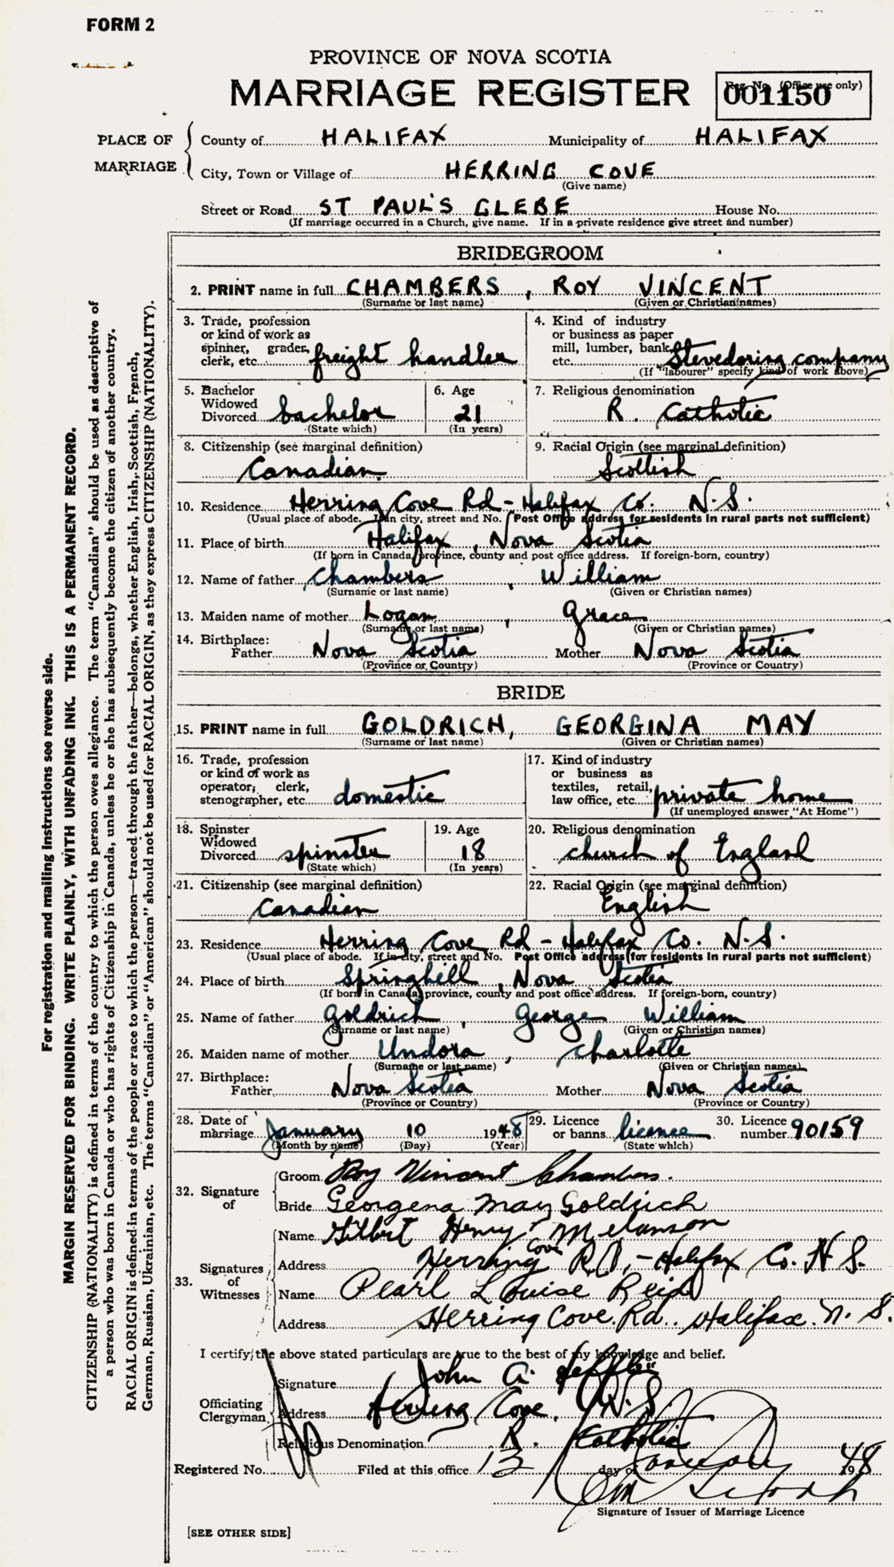 FORM 2
PROVINCE OF NOVA SCOTIA
MARRIAGE REGISTER
Reg. No. (Office use only)
001150
PLACE OF MARRIAGE
County of HALIFAX Municipality of HALIFAX
City, Town or Village of HERRING COVE
(Give name)
Street or Road ST PAUL'S GLEBE House No.
(If marriage occurred in a Church, give name. If in a private residence give street and number)
BRIDEGROOM
2. PRINT name in full CHAMBERS, ROY VINCENT
(Surname or last name) (Given or Christian names)
3. Trade, profession or kind of work as spinner, grader, clerk, etc. freight handler
4. Kind of industry or business as paper mill, lumber, bank, etc. Stevedoring company
(If "labourer" specify kind of work above)
5. Bachelor Widowed Divorced bachelor
(State which)
6. Age 21
(In years)
7. Religious denomination R. Catholic
8. Citizenship (see marginal definition) Canadian
9. Racial Origin (see marginal definition) Scottish
10. Residence Herring Cove Rd - Halifax Co. N.S.
(Usual place of abode. If in city, street and No. Post Office address for residents in rural parts not sufficient)
11. Place of birth Halifax, Nova Scotia
(If born in Canada, province, county and post office address. If foreign-born, country)
12. Name of father Chambers, William
(Surname or last name) (Given or Christian names)
13. Maiden name of mother Logan, Grace
(Surname or last name) (Given or Christian names)
14. Birthplace:
Father Nova Scotia Mother Nova Scotia
(Province or Country) (Province or Country)
BRIDE
15. PRINT name in full GOLDRICH, GEORGINA MAY
(Surname or last name) (Given or Christian names)
16. Trade, profession or kind of work as operator, clerk, stenographer, etc. domestic
17. Kind of industry or business as textiles, retail, law office, etc. private home
(If unemployed answer "At Home")
18. Spinster Widowed Divorced spinster
(State which)
19. Age 18
(In years)
20. Religious denomination church of England
21. Citizenship (see marginal definition) Canadian
22. Racial Origin (see marginal definition) English
23. Residence Herring Cove Rd - Halifax Co. N.S.
(Usual place of abode. If in city, street and No. Post Office address for residents in rural parts not sufficient)
24. Place of birth Springhill, Nova Scotia
(If born in Canada, province, county and post office address. If foreign-born, country)
25. Name of father Goldrich, George William
(Surname or last name) (Given or Christian names)
26. Maiden name of mother Undora, Charlotte
(Surname or last name) (Given or Christian names)
27. Birthplace:
Father Nova Scotia Mother Nova Scotia
(Province or Country) (Province or Country)
28. Date of marriage January 10 1948
(Month by name) (Day) (Year)
29. Licence or banns licence
(State which)
30. Licence number 90159
32. Signature of
Groom Roy Vincent Chambers.
Bride Georgena May Goldrich
33. Signatures of Witnesses
Name Gilbert Henry Melanson
Address Herring Cove Rd, - Halifax Co. N S.
Name Pearl Louise Reid
Address Herring Cove. Rd. Halifax. N. S.
I certify the above stated particulars are true to the best of my knowledge and belief.
Officiating Clergyman
Signature John A.
Address Herring Cove, N.S.
Religious Denomination R. Catholic
Registered No. Filed at this office 13 day of January 1948
Signature of Issuer of Marriage Licence
[SEE OTHER SIDE]
For registration and mailing instructions see reverse side.
MARGIN RESERVED FOR BINDING. WRITE PLAINLY, WITH UNFADING INK. THIS IS A PERMANENT RECORD.
CITIZENSHIP (NATIONALITY) is defined in terms of the country to which the person owes allegiance. The term "Canadian" should be used as descriptive of
a person who was born in Canada or who has rights of Citizenship in Canada, unless he or she has subsequently become the citizen of another country.
RACIAL ORIGIN is defined in terms of the people or race to which the person—traced through the father—belongs, whether English, Irish, Scottish, French,
German, Russian, Ukrainian, etc. The terms "Canadian" or "American" should not be used for RACIAL ORIGIN, as they express CITIZENSHIP (NATIONALITY).